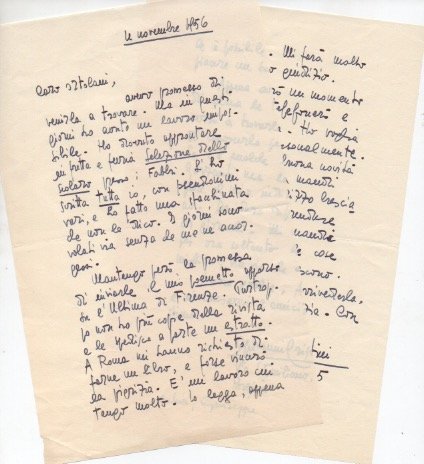 novembre 1956
Caro Ortolani,
avevo promesso di
venirla a trovare. Ma in questi
giorni ho avuto un lavoro impos-
sibile. Ho dovuto approntare
in fretta e furia Selezione dello
scolaro presso i Fabbri. L'ho
scritta tutta io, con pseudonimi
vari, e ho fatto una sfacchinata
che non le dico. I giorni sono
volati via senza che me ne accor-
gessi.
Mantengo però la promessa
di inviarle il mio poemetto apparso
su l'Ultima di Firenze. Purtrop-
po non ho più copie della rivista
e le spedisco a parte un estratto.
A Roma mi hanno richiesto di
farne un libro, e forse vincerò
la pigrizia. E' un lavoro cui
tengo molto. Lo legga, appena
Mi farà molto
giudizio.
un momento
telefonerò e
Ho voglia
sonalmente.
buona novità
mandi
indirizzo brescia
mandi
e cose
sono.
rivederla.
Con
5